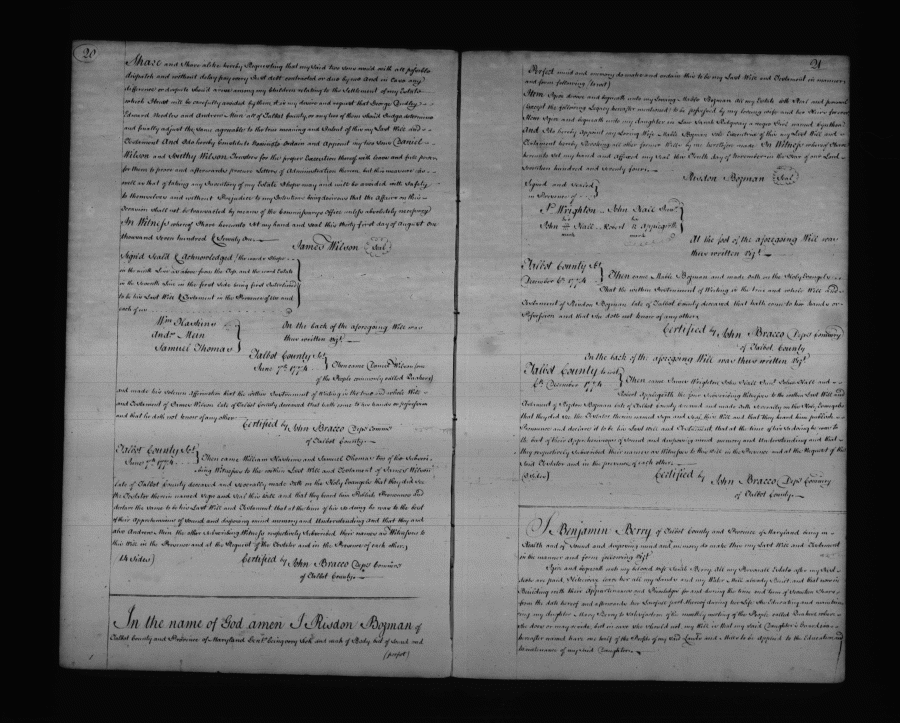 20
Share and Share alike hereby Requesting that my said two sons would with all possible
dispatch and without delay pay every Just debt contracted or due by me And in Case any
difference or dispute should arise among my Children relating to the Settlement of my Estate
which I trust will be carefully avoided by them, it is my desire and request that George Dudley
Edward Needles and Andrew Mein all of Talbot County, or any two of them should Judge determine
and finally adjust the same agreeable to the true meaning and Intent of this my Last Will and
Testament And I do hereby Constitute Nominate Ordain and Appoint my two Sons Daniel
Wilson and Wilson Executors for the proper Execution thereof with leave and full power
for them to prove and afterwards procure Letters of Administration thereon but the as
well as that of taking any Inventory of my Estate I hope may and will be avoided with Safety
to themselves and without Prejudice to my Intentions being desirous that the Affairs on this
Occasion shall not be by means of the Commissarys Office unless absolutely necessary
In Witness whereof I have hereunto set my hand and Seal this thirty first day of August One
thousand seven hundred & Seventy One
James Wilson Seal
Signd Seald & acknowledged, the words I hope
in the ninth Line as above from the Top and the word Estate
in the Seventh Line in the first side being first Interlined
to be his Last Will & Testament in the Presence of Us and
each of us
Wm Haskins
Andw Mein
Samuel Thomas
On the back of the aforegoing Will was
thus written Vizt
Talbot County Sct
June 7th 1774
Then came Daniel Wilson (one
of the People commonly called Quakers)
and made his solemn Affirmation that the within Instrument of Writing is the true and whole Will
and Testament of James Wilson late of Talbot County deceased that hath come to his hands or possession
and that he doth not know of any other
Certified by John Bracco Depy Commry
of Talbot County
Talbot County Sct
June 7th 1774
Then came William Haskins and Samuel Thomas two of the Subscri-
bing Witnesses to the within Last Will and Testament of James Wilson
late of Talbot County deceased and severally made Oath on the Holy Evangels that they did see
the Testator therein named Sign and Seal this Will and that they heard him Publish Pronounce and
declare the same to be his Last Will and Testament that at the time of his so doing he was to the best
of their Apprehensions of Sound and disposing mind memory and Understanding and that they and
also Andrew Mein the other Subscribing Witness respectively Subscribed their names as Witnesses to
this Will in the Presence and at the Request of the Testator and in the Presence of each other
Sides)
Certified by John Bracco Depy Commry
of Talbot County
In the name of God amen I Risdon Bozman of
Talbot County and Province of Maryland Gent being very Sick and weak of Body but of Sound and
(perfect)
21
Perfect mind and memory do make and ordain this to be my Last Will and Testament in manner
and form following (Vizt)
Item I give devise and bequeath unto my Loving Bozman all my Estate both Real and personal
(except the following Legacy hereafter mentioned) to be possessed by my Loving wife and her Heirs forever
Item I give and bequeath unto my daughter in Law Sarah a negro Girl named
And I do hereby appoint my Loving Wife Bozman sole Executrix of this my Last Will and
Testament hereby Revoking all other former Wills by me heretofore made In Witness whereof I have
hereunto set my hand and affixed my Seal this day of November in the Year of our Lord
Seventeen hundred and Seventy four
Risdon Bozman Seal
Signed and Sealed
in Presence of
Js Wrighton John Hall Senr
John Hall Robert Applegarth
his mark
At the foot of the aforegoing Will was
thus written Vizt
Talbot County Sct
December 6th 1774
Then came Bozman and made Oath on the Holy Evangels
That the within Instrument of Writing is the true and whole Will and
Testament of Risdon Bozman late of Talbot County deceased that hath come to her hands or
Possession and that She doth not know of any other
Certified by John Bracco Depy Commry
of Talbot County
On the back of the aforegoing Will was thus written Vizt
Talbot County to wit
6th December 1774
Then came James Wrighton John Hall Senr John Hall and
Robert Applegarth the four Subscribing Witnesses to the within Last Will and
Testament of Risdon Bozman late of Talbot County deceased and made Oath severally on the Holy Evangels
that they did see the Testator therein named Sign and Seal this Will and that they heard him publish
Pronounce and declare it to be his Last Will and Testament, that at the time of his so doing he was to
the best of their Apprehensions of Sound and disposing mind memory and Understanding and that
they respectively Subscribed their Names as Witnesses to this Will in the Presence and at the Request of the
said Testator and in the presence of each other
Certified by John Bracco Depy Commry
of Talbot County
I Benjamin Berry of Talbot County and Province of Maryland being in
Health and of Sound and disposing mind and memory do make this my Last Will and Testament
in the manner and form following Vizt
I give and bequeath unto my beloved wife Sarah Berry all my Personall Estate after my Just
debts are paid, Likewise leave her all my Lands and my Water Mill already Built and that now in
Building with their Appurtenances and Priviledges for and during the time and term of Seventeen Years
from the date hereof and afterwards her Lawfull part thereof during her Life she Educating and maintain
ing my daughter Mary Berry to Satisfaction of the monthly meeting of the People called Quakers where
she does or may reside, but in case she should not my Will is that my said Daughters Guardian
hereafter named have one half of the Profits of my said Lands and Mills to be applied to the Education and
maintenance of my said Daughter